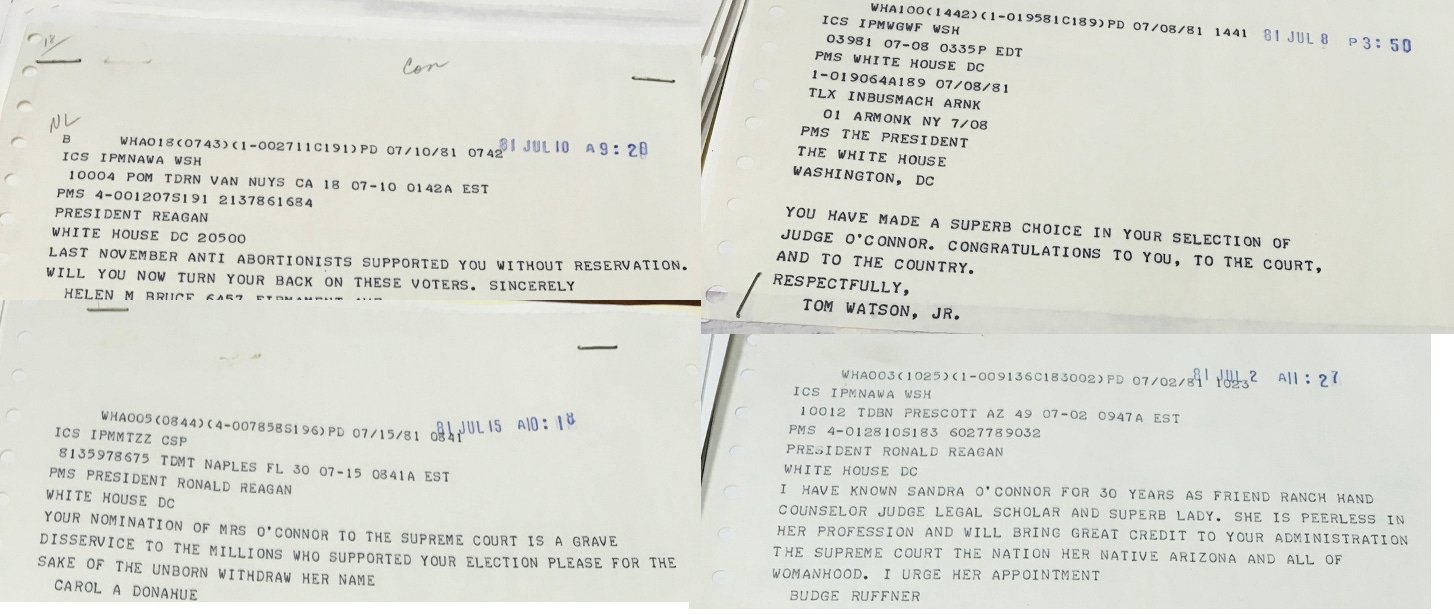 18/
Con
NL
B WHA018(0743)(1-002711C191)PD 07/10/81 0742 81 JUL 10 A9:28
ICS IPMNAWA WSH
10004 POM TDRN VAN NUYS CA 18 07-10 0142A EST
PMS 4-001207S191 2137861684
PRESIDENT REAGAN
WHITE HOUSE DC 20500
LAST NOVEMBER ANTI ABORTIONISTS SUPPORTED YOU WITHOUT RESERVATION.
WILL YOU NOW TURN YOUR BACK ON THESE VOTERS. SINCERELY
HELEN M BRUCE 6457
WHA100(1442)(1-019581C189)PD 07/08/81 1441 81 JUL 8 P3:50
ICS IPMWGWF WSH
03981 07-08 0335P EDT
PMS WHITE HOUSE DC
1-019064A189 07/08/81
TLX INBUSMACH ARNK
01 ARMONK NY 7/08
PMS THE PRESIDENT
THE WHITE HOUSE
WASHINGTON, DC
YOU HAVE MADE A SUPERB CHOICE IN YOUR SELECTION OF
JUDGE O'CONNOR. CONGRATULATIONS TO YOU, TO THE COURT,
AND TO THE COUNTRY.
RESPECTFULLY,
TOM WATSON, JR.
WHA005(0844)(4-007858S196)PD 07/15/81 0841 81 JUL 15 A10:18
ICS IPMMTZZ CSP
8135978675 TDMT NAPLES FL 30 07-15 0841A EST
PMS PRESIDENT RONALD REAGAN
WHITE HOUSE DC
YOUR NOMINATION OF MRS O'CONNOR TO THE SUPREME COURT IS A GRAVE
DISSERVICE TO THE MILLIONS WHO SUPPORTED YOUR ELECTION PLEASE FOR THE
SAKE OF THE UNBORN WITHDRAW HER NAME
CAROL A DONAHUE
WHA003(1025)(1-009136C183002)PD 07/02/81 1023 81 JUL 2 A11:27
ICS IPMNAWA WSH
10012 TDBN PRESCOTT AZ 49 07-02 0947A EST
PMS 4-012810S183 6027789032
PRESIDENT RONALD REAGAN
WHITE HOUSE DC
I HAVE KNOWN SANDRA O'CONNOR FOR 30 YEARS AS FRIEND RANCH HAND
COUNSELOR JUDGE LEGAL SCHOLAR AND SUPERB LADY. SHE IS PEERLESS IN
HER PROFESSION AND WILL BRING GREAT CREDIT TO YOUR ADMINISTRATION
THE SUPREME COURT THE NATION HER NATIVE ARIZONA AND ALL OF
WOMANHOOD. I URGE HER APPOINTMENT
BUDGE RUFFNER